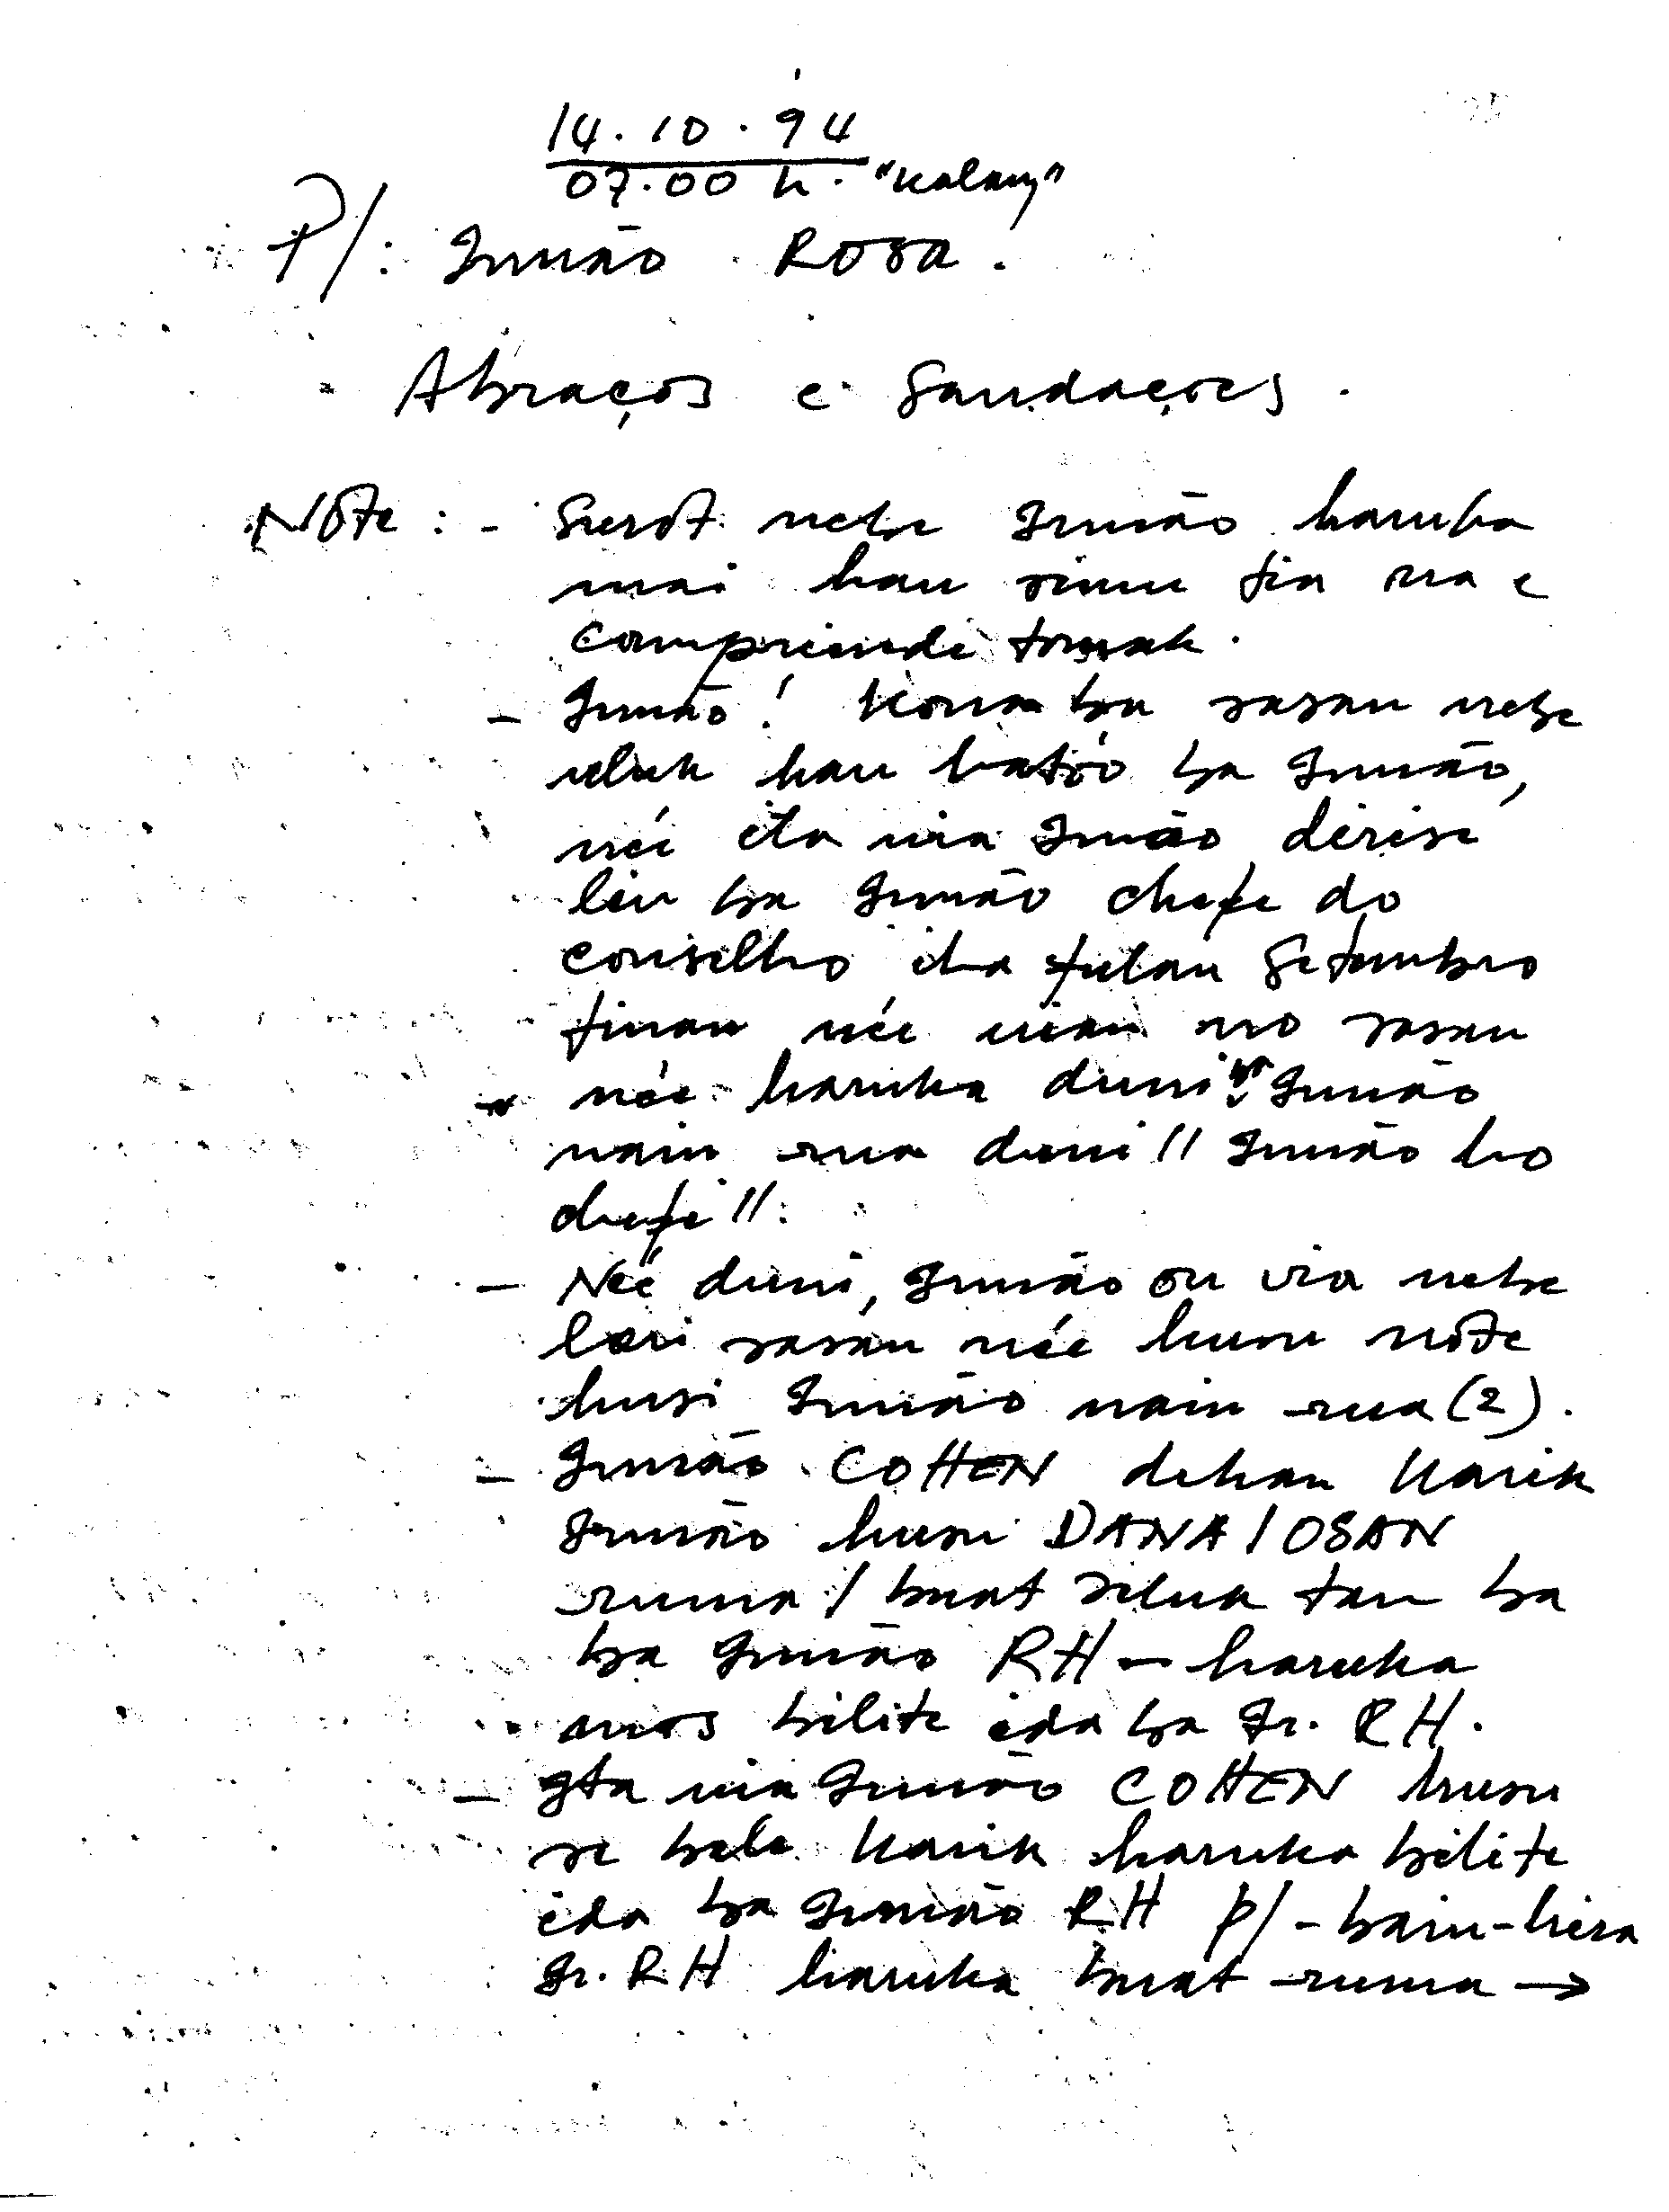 14.10.94
07.00 h. "kalan"
P/: Irmão Rosa.
Abraços e Saudações.
Note: - Surat nebe Irmão haruka
mai hau simu tia ona e
compriende tomak.
- Irmão! Kona ba sasan nebe
uluk hau hatóo ba Irmão,
née ita nia Irmão derise
liu ba Irmão chefe do
conselho iha fulan Setembro
tinan née nian no sasan
née haruka duni ba Irmão
nain rua duni!! Irmão ho
chefe!!.
- Neé duni, Irmão ou via nebe
lori sasan née husu note
husi Irmão nain rua (2).
- Irmão COHEN dehan karik
Irmão husu DANA/OSAN
ruma/buat seluk tan ba
ba Irmão RH - haruka
mos bilite ida ba Ir. RH.
- Ita nia Irmão COHEN husu
se bele karik haruka bilite
ida ba Irmão RH p/- bain-hira
Ir. RH haruka buat ruma →